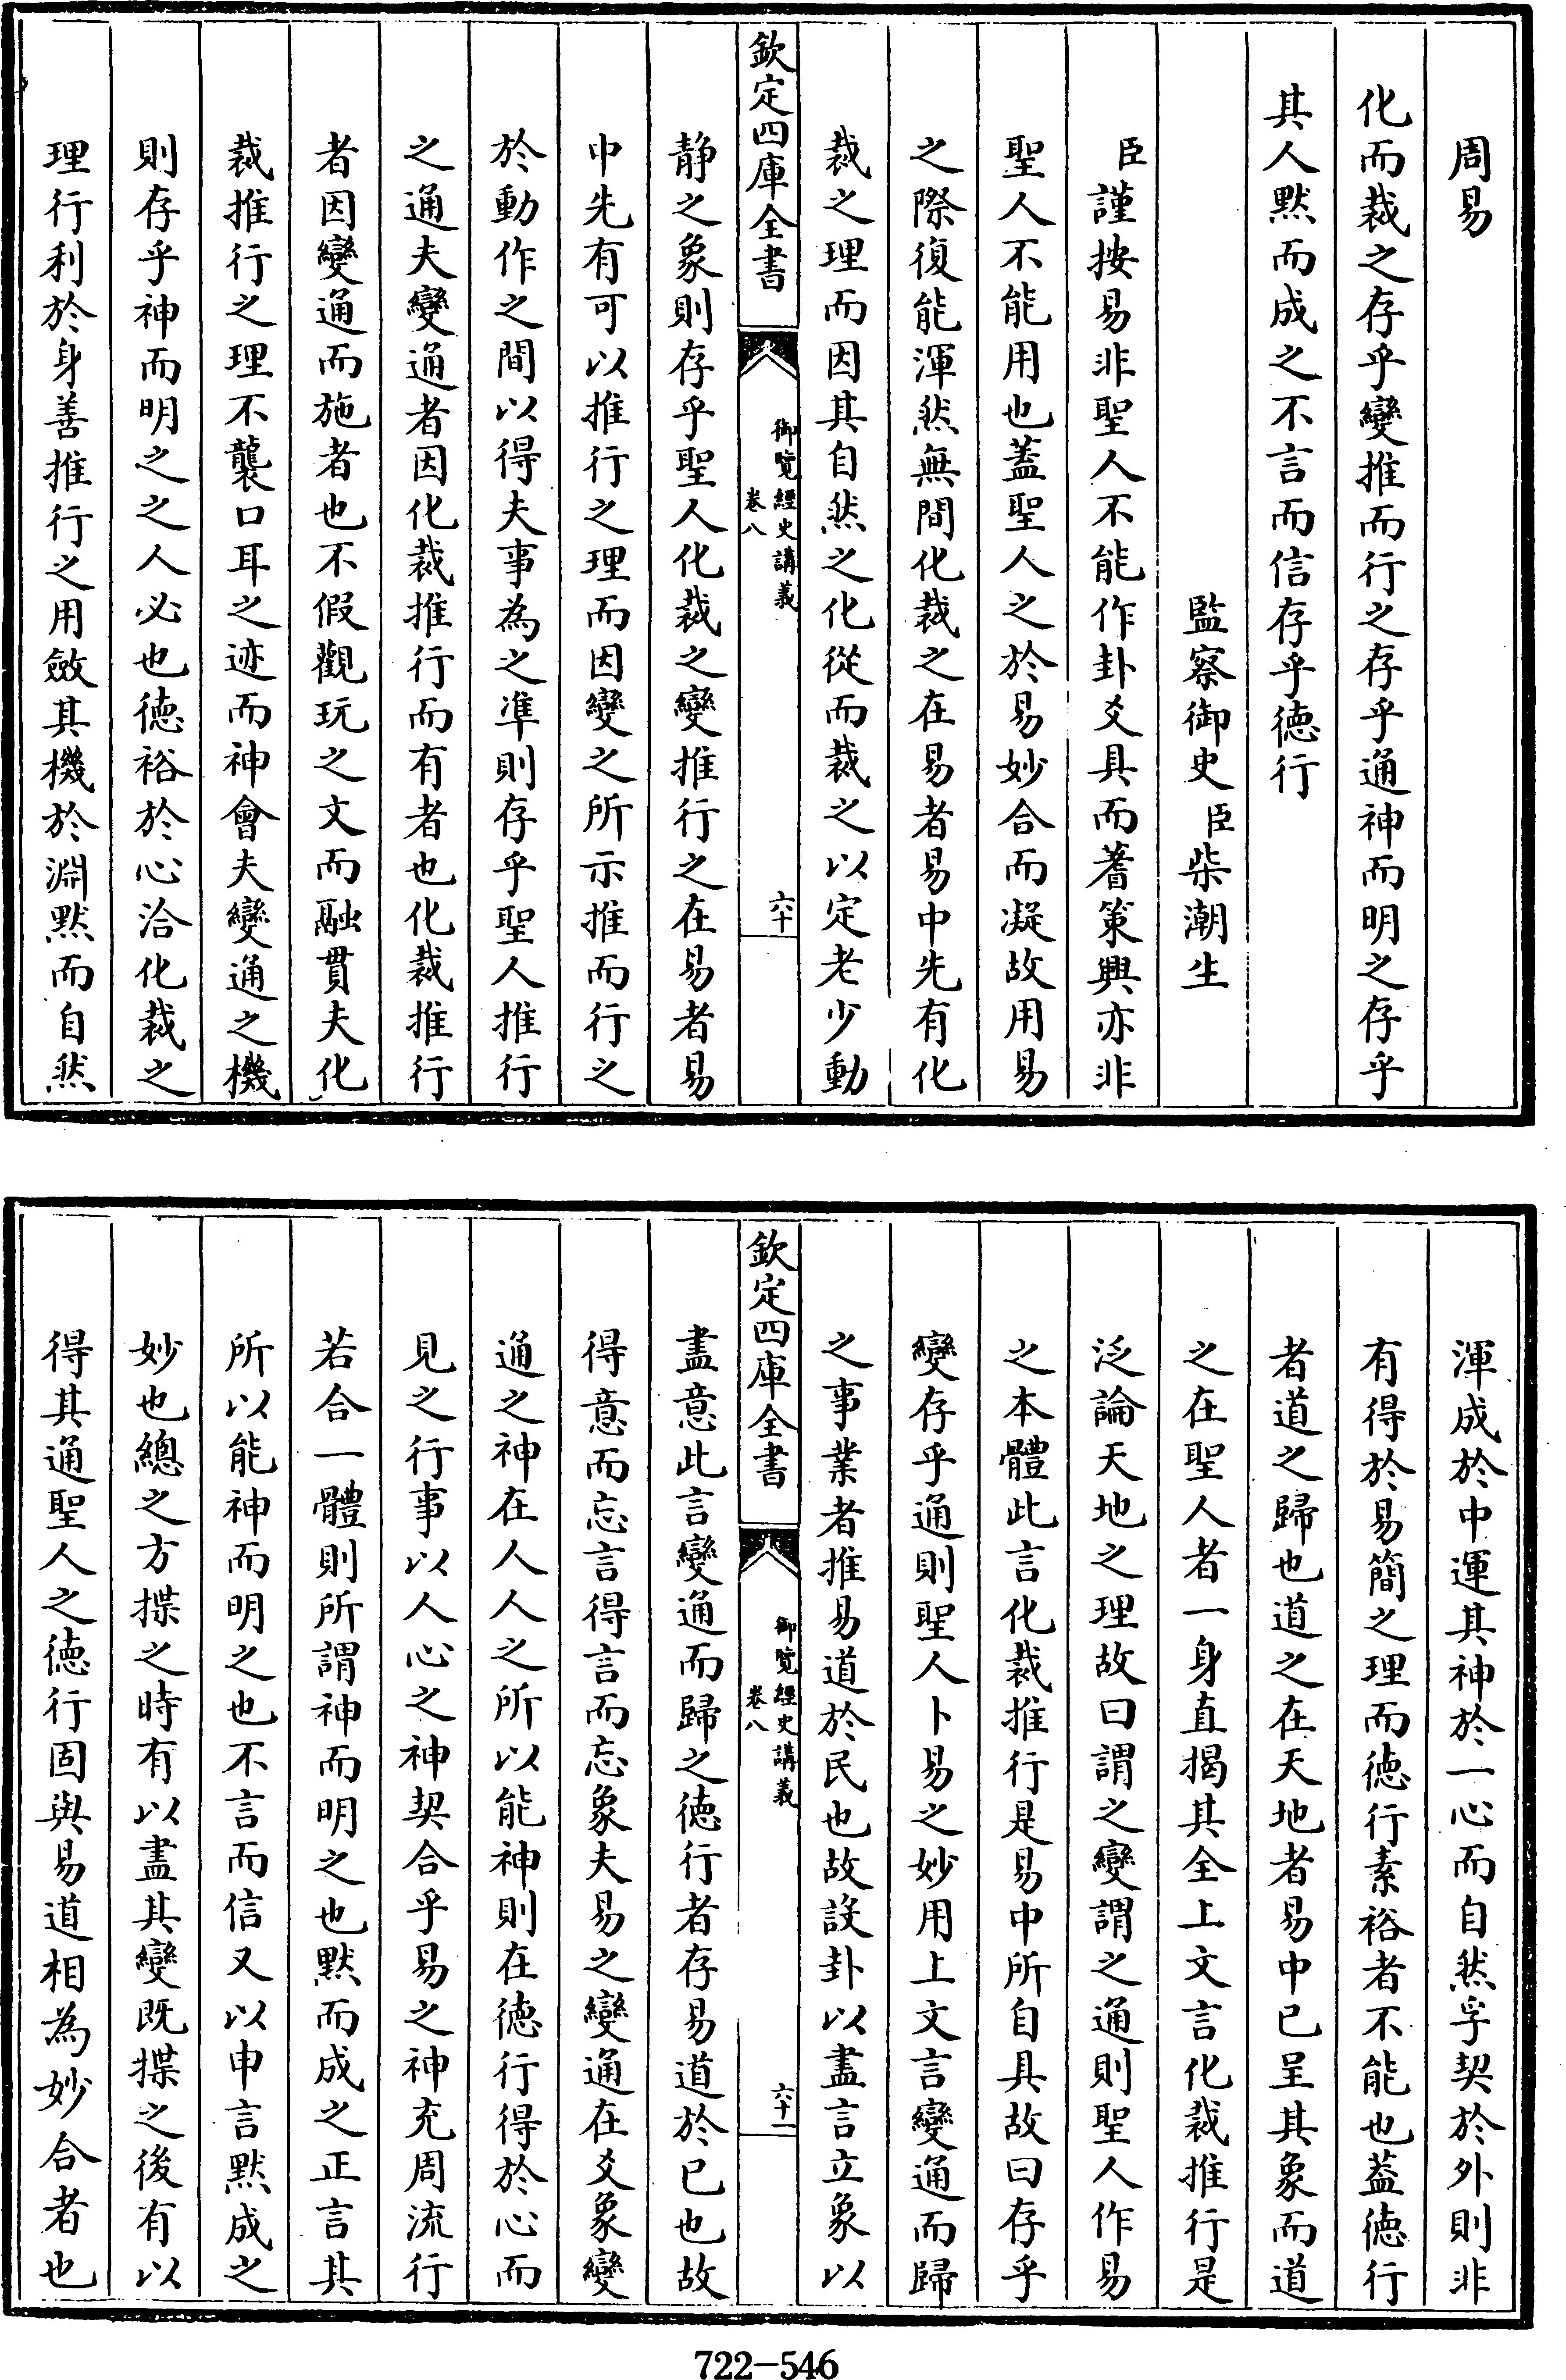 周易
化而裁之存乎變推而行之存乎通神而明之存乎
其人默而成之不言而信存乎徳行
監察御史臣柴潮生
臣謹按易非聖人不能作卦爻具而蓍策興亦非
聖人不能用也蓋聖人之於易妙合而凝故用易
之際復能渾然無間化裁之在易者易中先有化
裁之理而因其自然之化從而裁之以定老少動
欽定四庫全書
御覽經史講義
卷八
六十
静之象則存乎聖人化裁之變推行之在易者易
中先有可以推行之理而因變之所示推而行之
於動作之間以得夫事為之準則存乎聖人推行
之通夫變通者因化裁推行而有者也化裁推行
者因變通而施者也不假觀玩之文而融貫夫化
裁推行之理不襲口耳之迹而神會夫變通之機
則存乎神而明之之人必也徳裕於心洽化裁之
理行利於身善推行之用斂其機於淵默而自然
渾成於中運其神於一心而自然孚契於外則非
有得於易簡之理而徳行素裕者不能也蓋徳行
者道之歸也道之在天地者易中已呈其象而道
之在聖人者一身直揭其全上文言化裁推行是
泛論天地之理故曰謂之變謂之通則聖人作易
之本體此言化裁推行是易中所自具故曰存乎
變存乎通則聖人卜易之妙用上文言變通而歸
之事業者推易道於民也故設卦以盡言立象以
欽定四庫全書
御覽經史講義
卷八
六十一
盡意此言變通而歸之徳行者存易道於已也故
得意而忘言得言而忘象夫易之變通在爻象變
通之神在人人之所以能神則在徳行得於心而
見之行事以人心之神契合乎易之神充周流行
若合一體則所謂神而明之也默而成之正言其
所以能神而明之也不言而信又以申言默成之
妙也總之方揲之時有以盡其變既揲之後有以
得其通聖人之徳行固與易道相為妙合者也
722-546